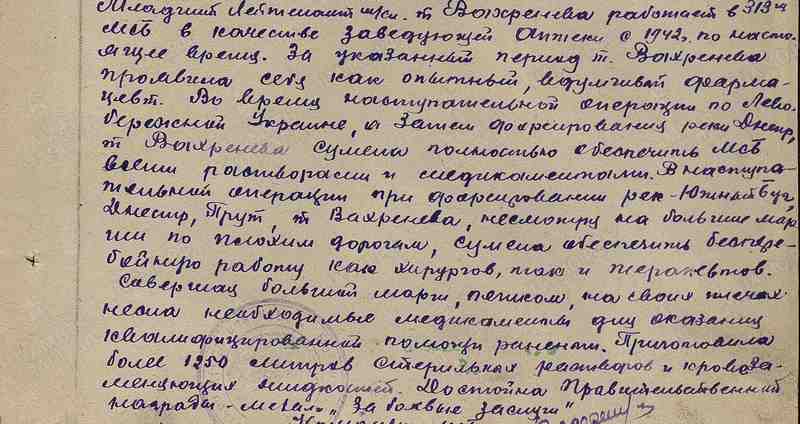 Младший Лейтенант м/сл. т Вахренева работает в 313м
МСБ в качестве заведующей Аптеки с 1942г. по насто-
ящее время. За указанный период т. Вахренева
проявила себя как опытный, вдумчивый фарма-
цевт. Во время наступательной операции по Лево-
бережной Украине, и затем форсирования реки Днепр,
т Вахренева сумела полностью обеспечить МСБ
всеми растворами и медикаментами. В наступа-
тельной операции при форсировании рек - Южный Буг,
Днестр, Прут, т Вахренева, несмотря на большие мар-
ши по плохим дорогам, сумела обеспечить беспере-
бойную работу как хирургов, так и терапевтов.
Совершая большие марши, пешком, на своих плечах
несла необходимые медикаменты для оказания
квалифицированной помощи раненым. Приготовила
более 1250 литров стерильных растворов и кровоза-
меняющих жидкостей. Достойна Правительственной
награды - медаль "За боевые заслуги"